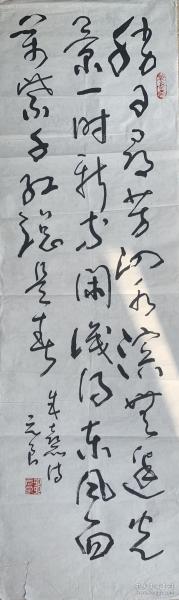 胜日寻芳泗水滨无边光
景一时新等闲识得东风面
万紫千红总是春
朱熹诗
元良